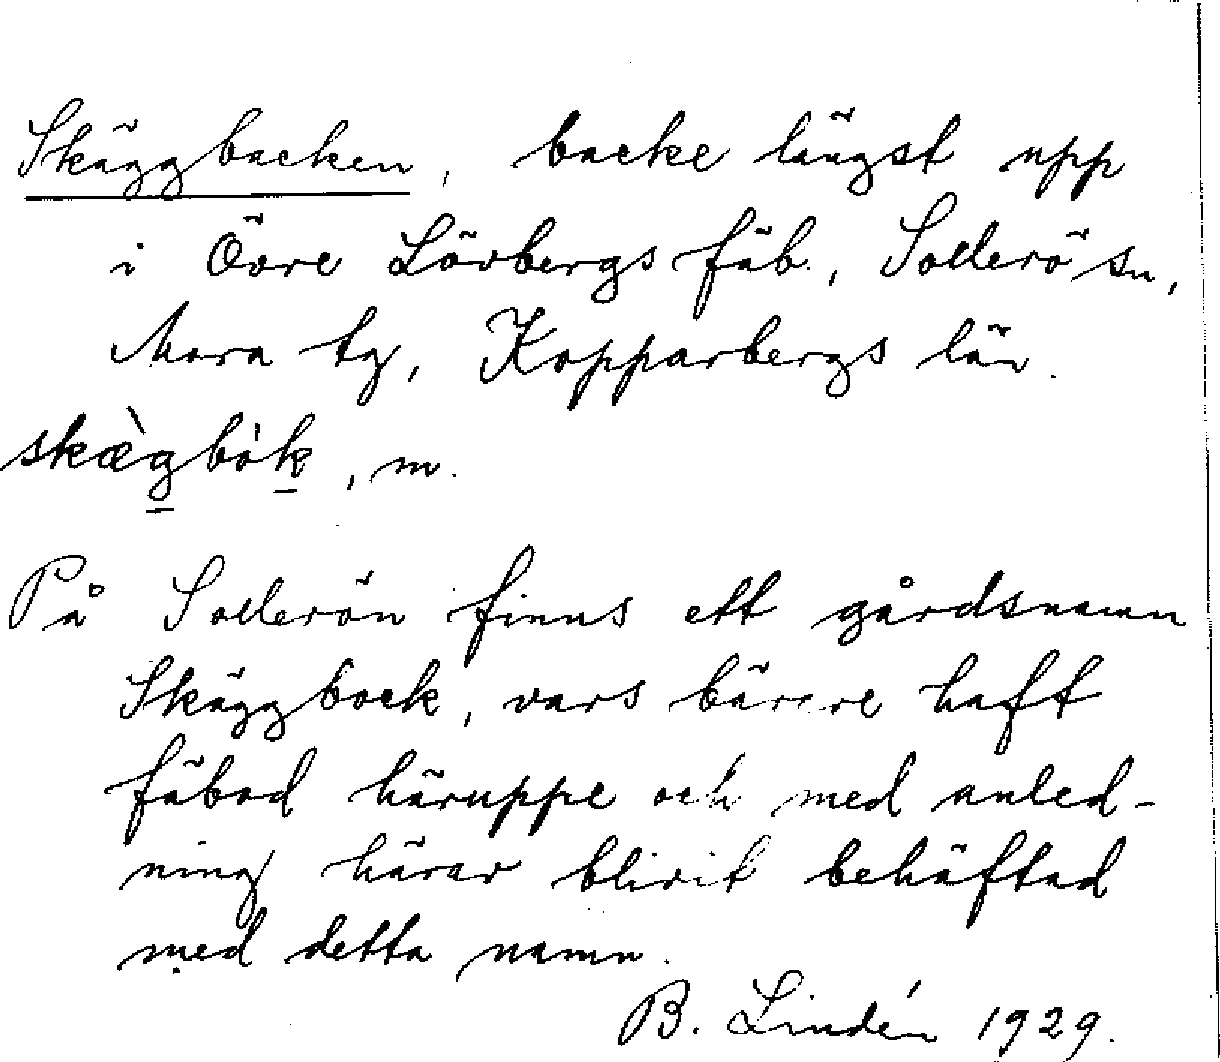 Skäggbacken, backe längst upp
i Övre Lövbergs fäb., Sollerö sn,
Mora tg, Kopparbergs län.
skæ̀g̲bòk̲, m.
På Sollerön finns ett gårdsnamn
Skäggbock, vars bärare haft
fäbod häruppe och med anled-
ning härav blivit behäftad
med detta namn.
B. Lindén 1929.